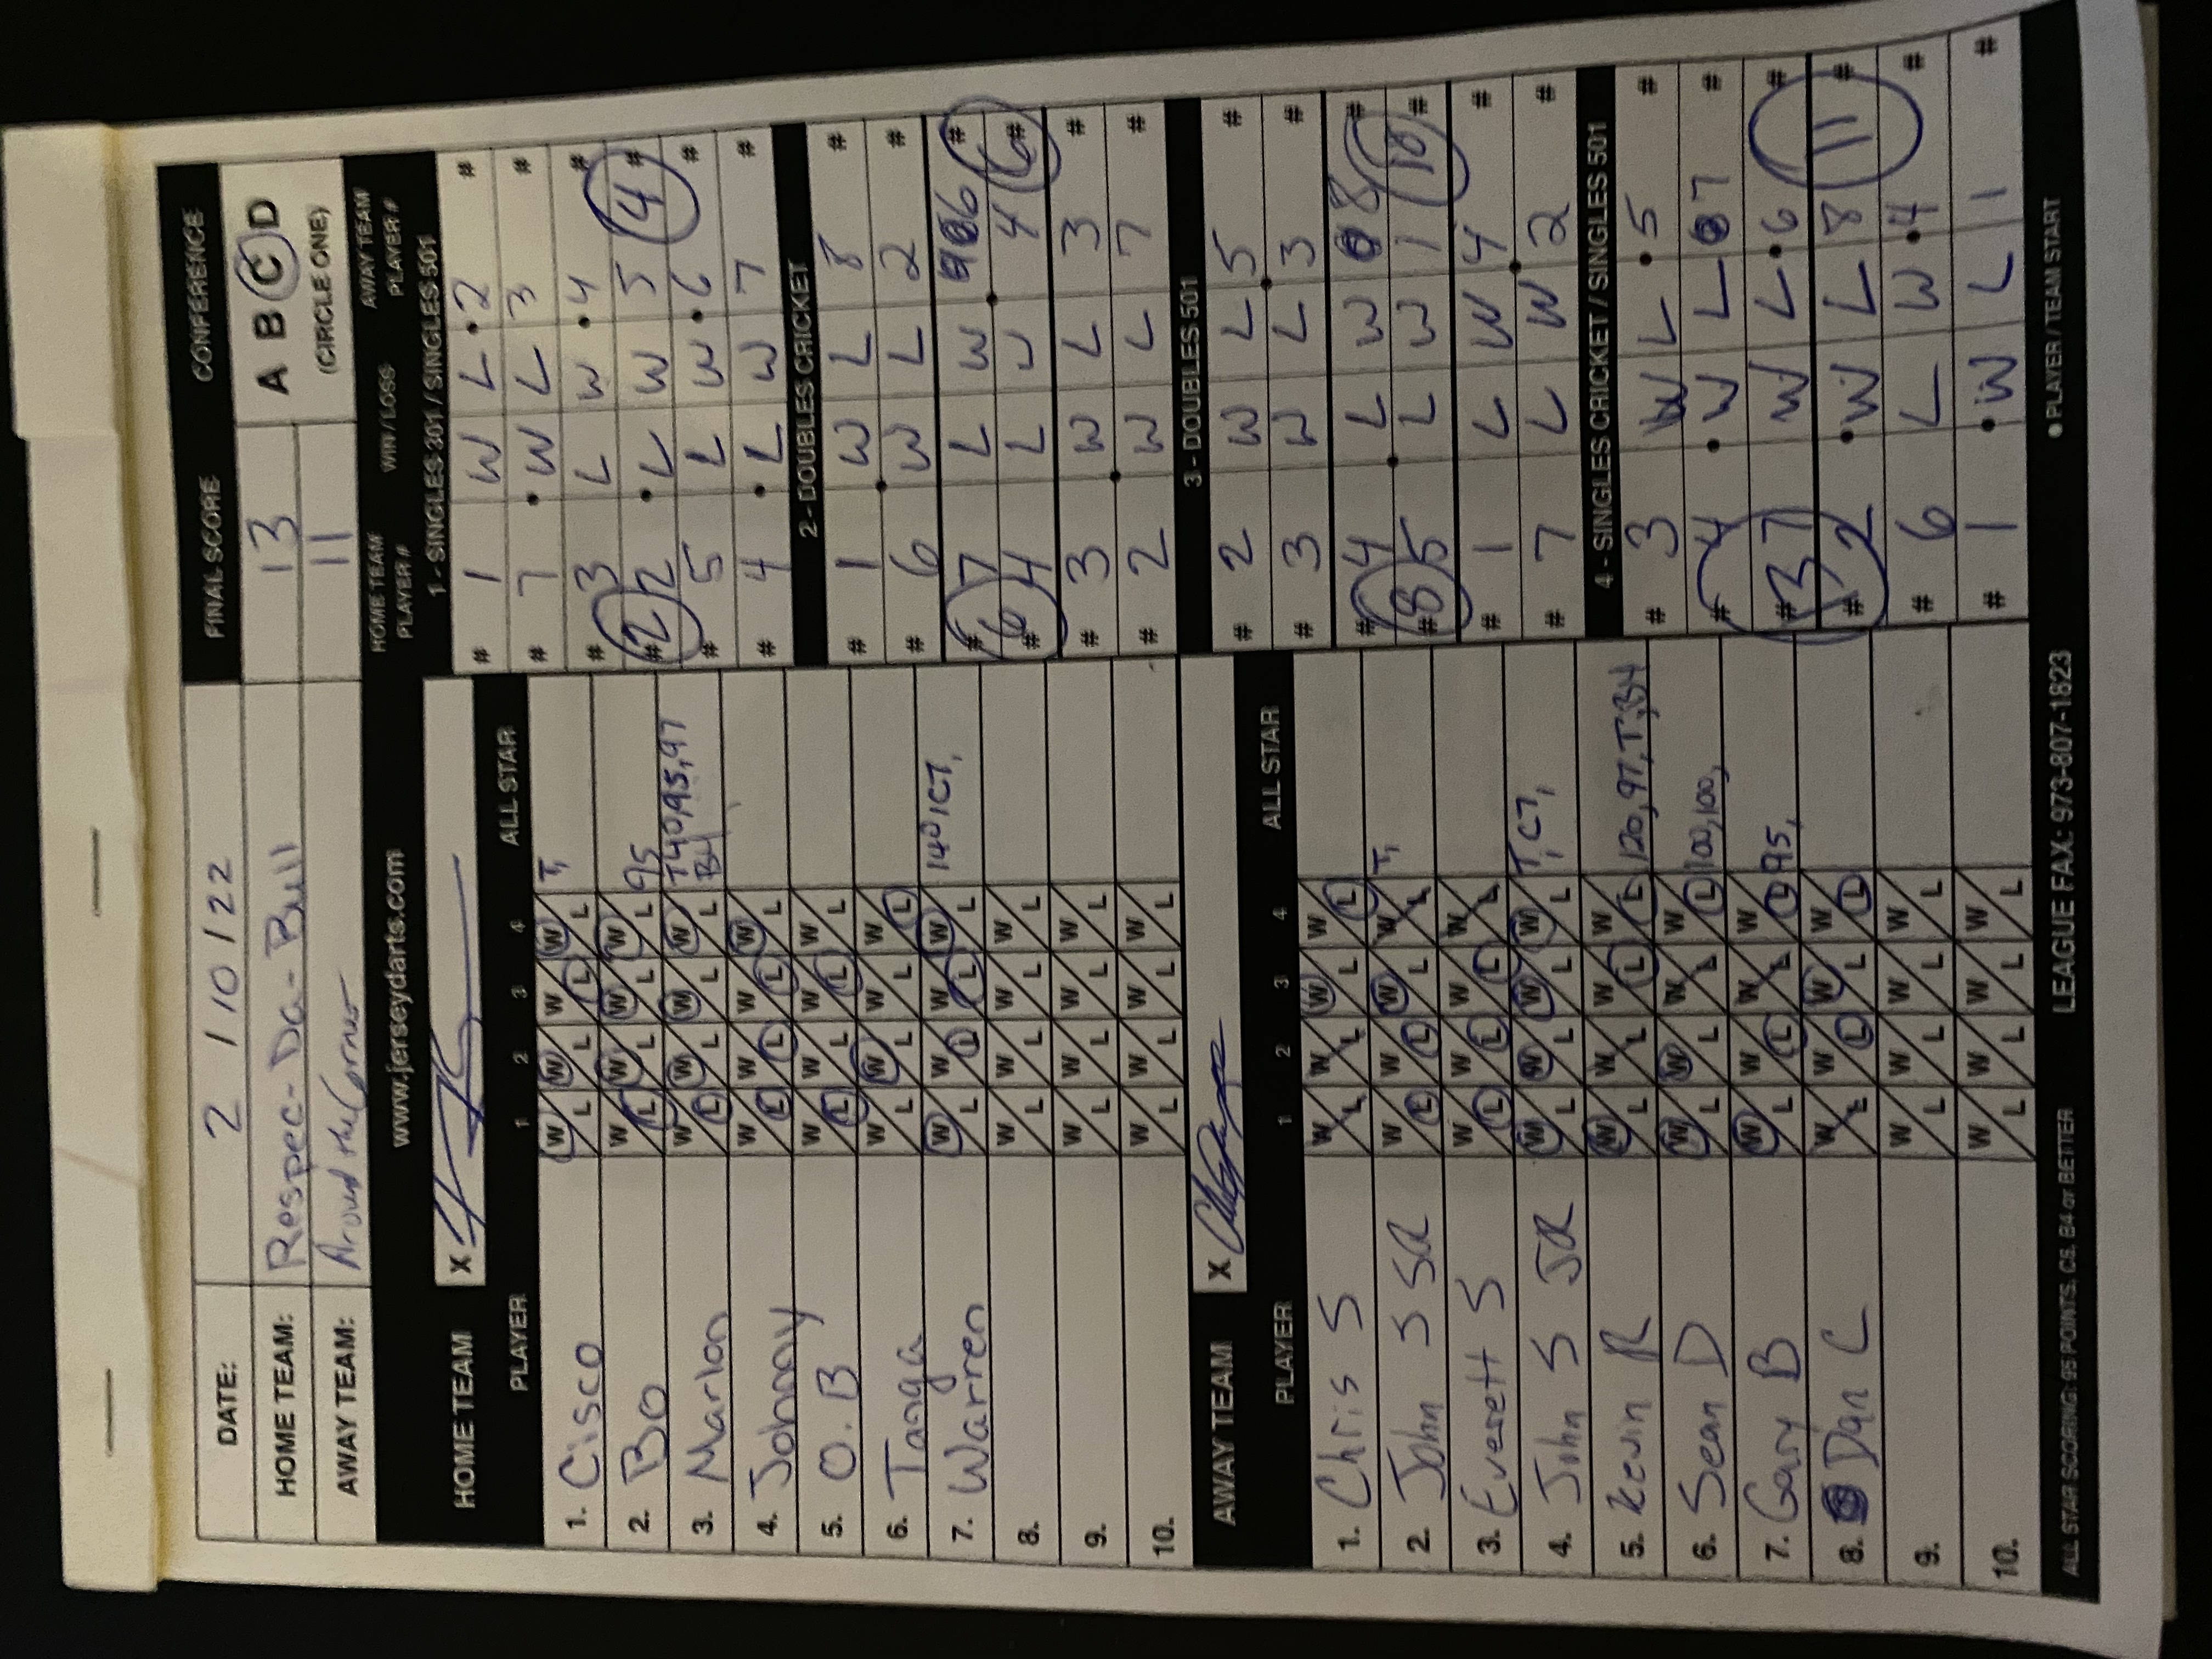 DATE: 2 / 10 / 22 FINAL SCORE CONFERENCE
HOME TEAM: Respec-Da-Bull 13 A B C D
AWAY TEAM: Around the Corner 11 (CIRCLE ONE)
www.jerseydarts.com
HOME TEAM X
PLAYER 1 2 3 4 ALL STAR
1. Cisco W/L W/L W/L W/L T,
2. Bo W/L W/L W/L W/L 95
3. Marlon W/L W/L W/L W/L T40,95,97
B4
4. Johnny W/L W/L W/L W/L
5. O.B W/L W/L W/L W/L
6. Tanga W/L W/L W/L W/L
7. Warren W/L W/L W/L W/L 140,CT,
8. W/L W/L W/L W/L
9. W/L W/L W/L W/L
10. W/L W/L W/L W/L
AWAY TEAM X
PLAYER 1 2 3 4 ALL STAR
1. Chris S W/L W/L W/L W/L
2. John S SR W/L W/L W/L W/L T,
3. Everett S W/L W/L W/L W/L
4. John S JR W/L W/L W/L W/L T,CT,
5. Kevin R W/L W/L W/L W/L 120,97,T,B4
6. Sean D W/L W/L W/L W/L 100,100,
7. Gary B W/L W/L W/L W/L 95,
8. Dan C W/L W/L W/L W/L
9. W/L W/L W/L W/L
10. W/L W/L W/L W/L
HOME TEAM PLAYER # WIN / LOSS AWAY TEAM PLAYER #
1 - SINGLES 301 / SINGLES 501
# 1 W L • 2 #
# 7 • W L 3 #
# 3 L W • 4 #
# 2 2 • L W 5 4 #
# 5 L W • 6 #
# 4 • L W 7 #
2 - DOUBLES CRICKET
# 1 W L 8 #
# 6 W L 2 #
# 7 L W 6 #
# 6 4 L W 4 6 #
# 3 W L 3 #
# 2 W L 7 #
3 - DOUBLES 501
# 2 W L 5 #
# 3 W L 3 #
# 4 L W 8 #
# 8 5 L W 1 10 #
# 1 L W 4 #
# 7 L W 2 #
4 - SINGLES CRICKET / SINGLES 501
# 3 W L • 5 #
# 4 • W L 7 #
# 13 7 W L • 6 #
# 2 • W L 8 11 #
# 6 L W • 4 #
# 1 • W L 1 #
ALL STAR SCORING: 95 POINTS, C5, B4 or BETTER LEAGUE FAX: 973-807-1823 ● PLAYER / TEAM START